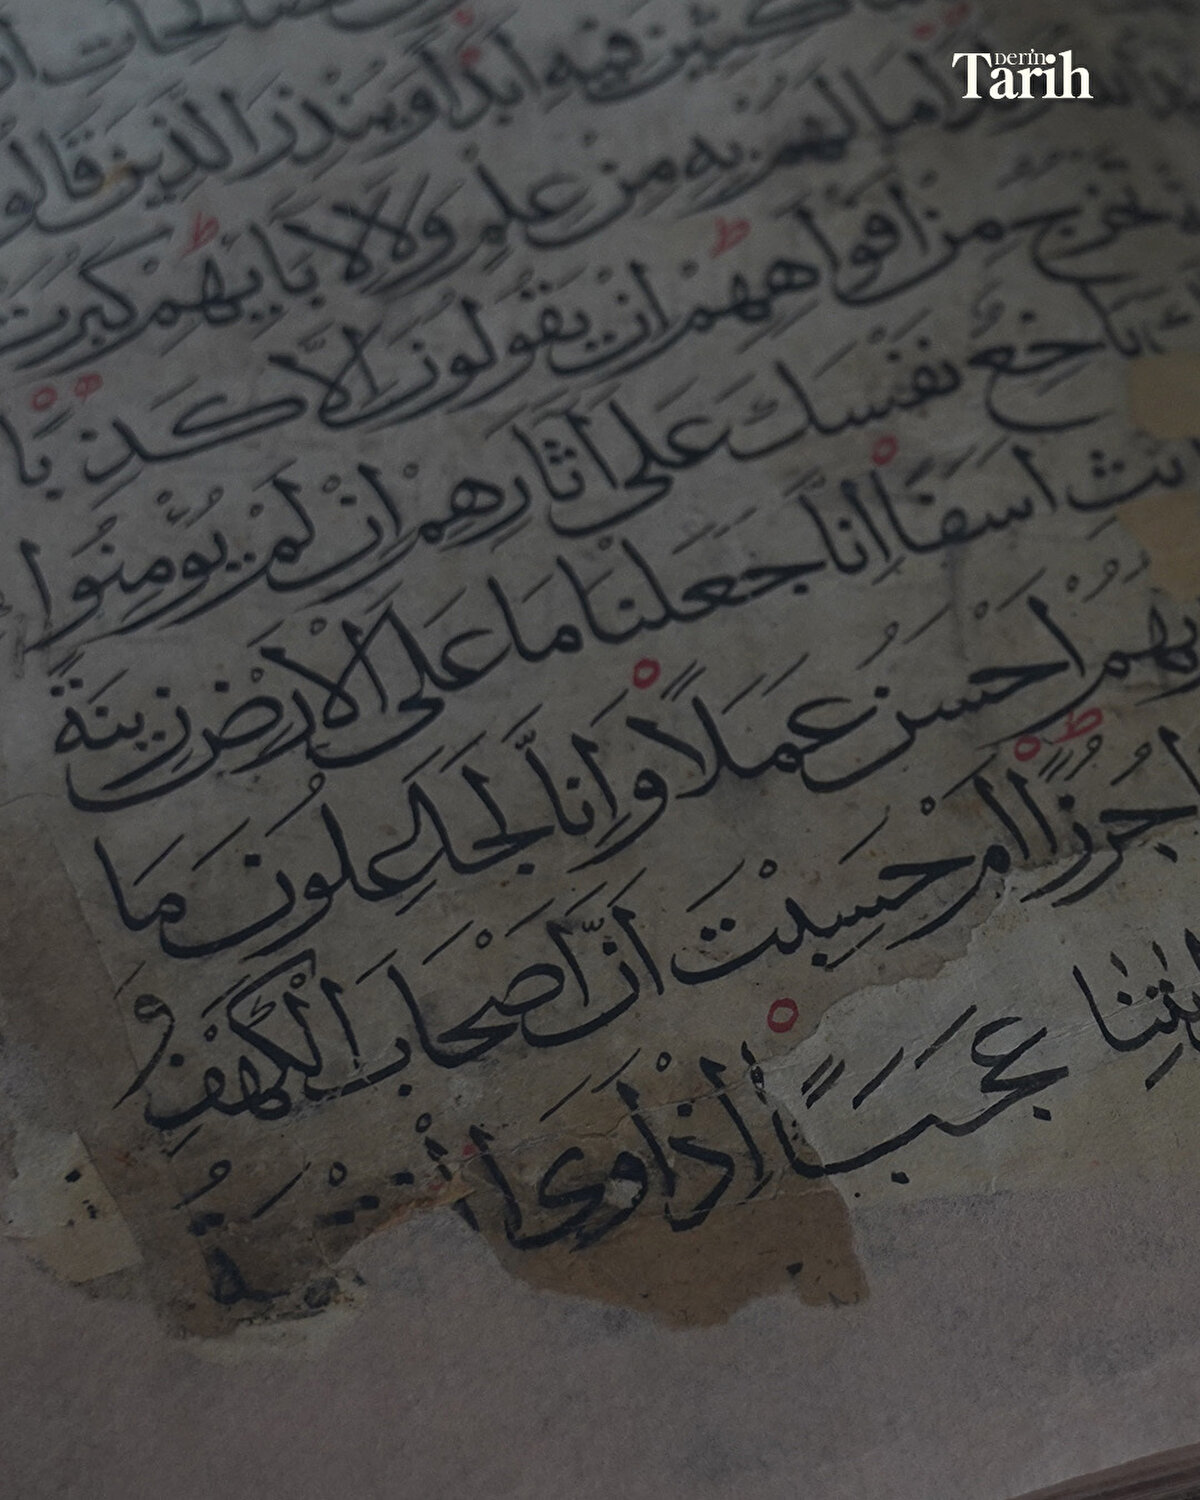 Derin Tarih
ماكثين فيه ابدًا وينذر الذين قالوا
ما لهم به من علمٍ ولا لابايهم كبرت
تخرج من افواههم ان يقولون الّا كذبًا
باخعٌ نفسك على اثارهم ان لم يؤمنوا
اسفًا انّا جعلنا ما على الارض زينةً
احسن عملًا وانّا لجاعلون ما
جرزًا ام حسبت انّ اصحاب الكهف و
عجبًا اذ اوى